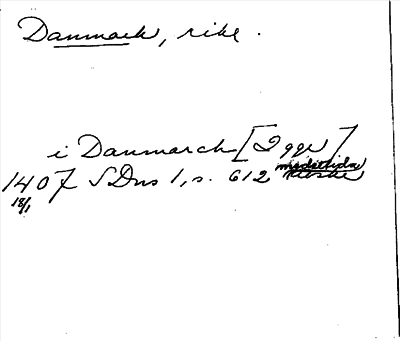 Danmark, rike.
i Danmarch [2 ggr]
1407 SDns 1, s. 612 medeltida
18/1